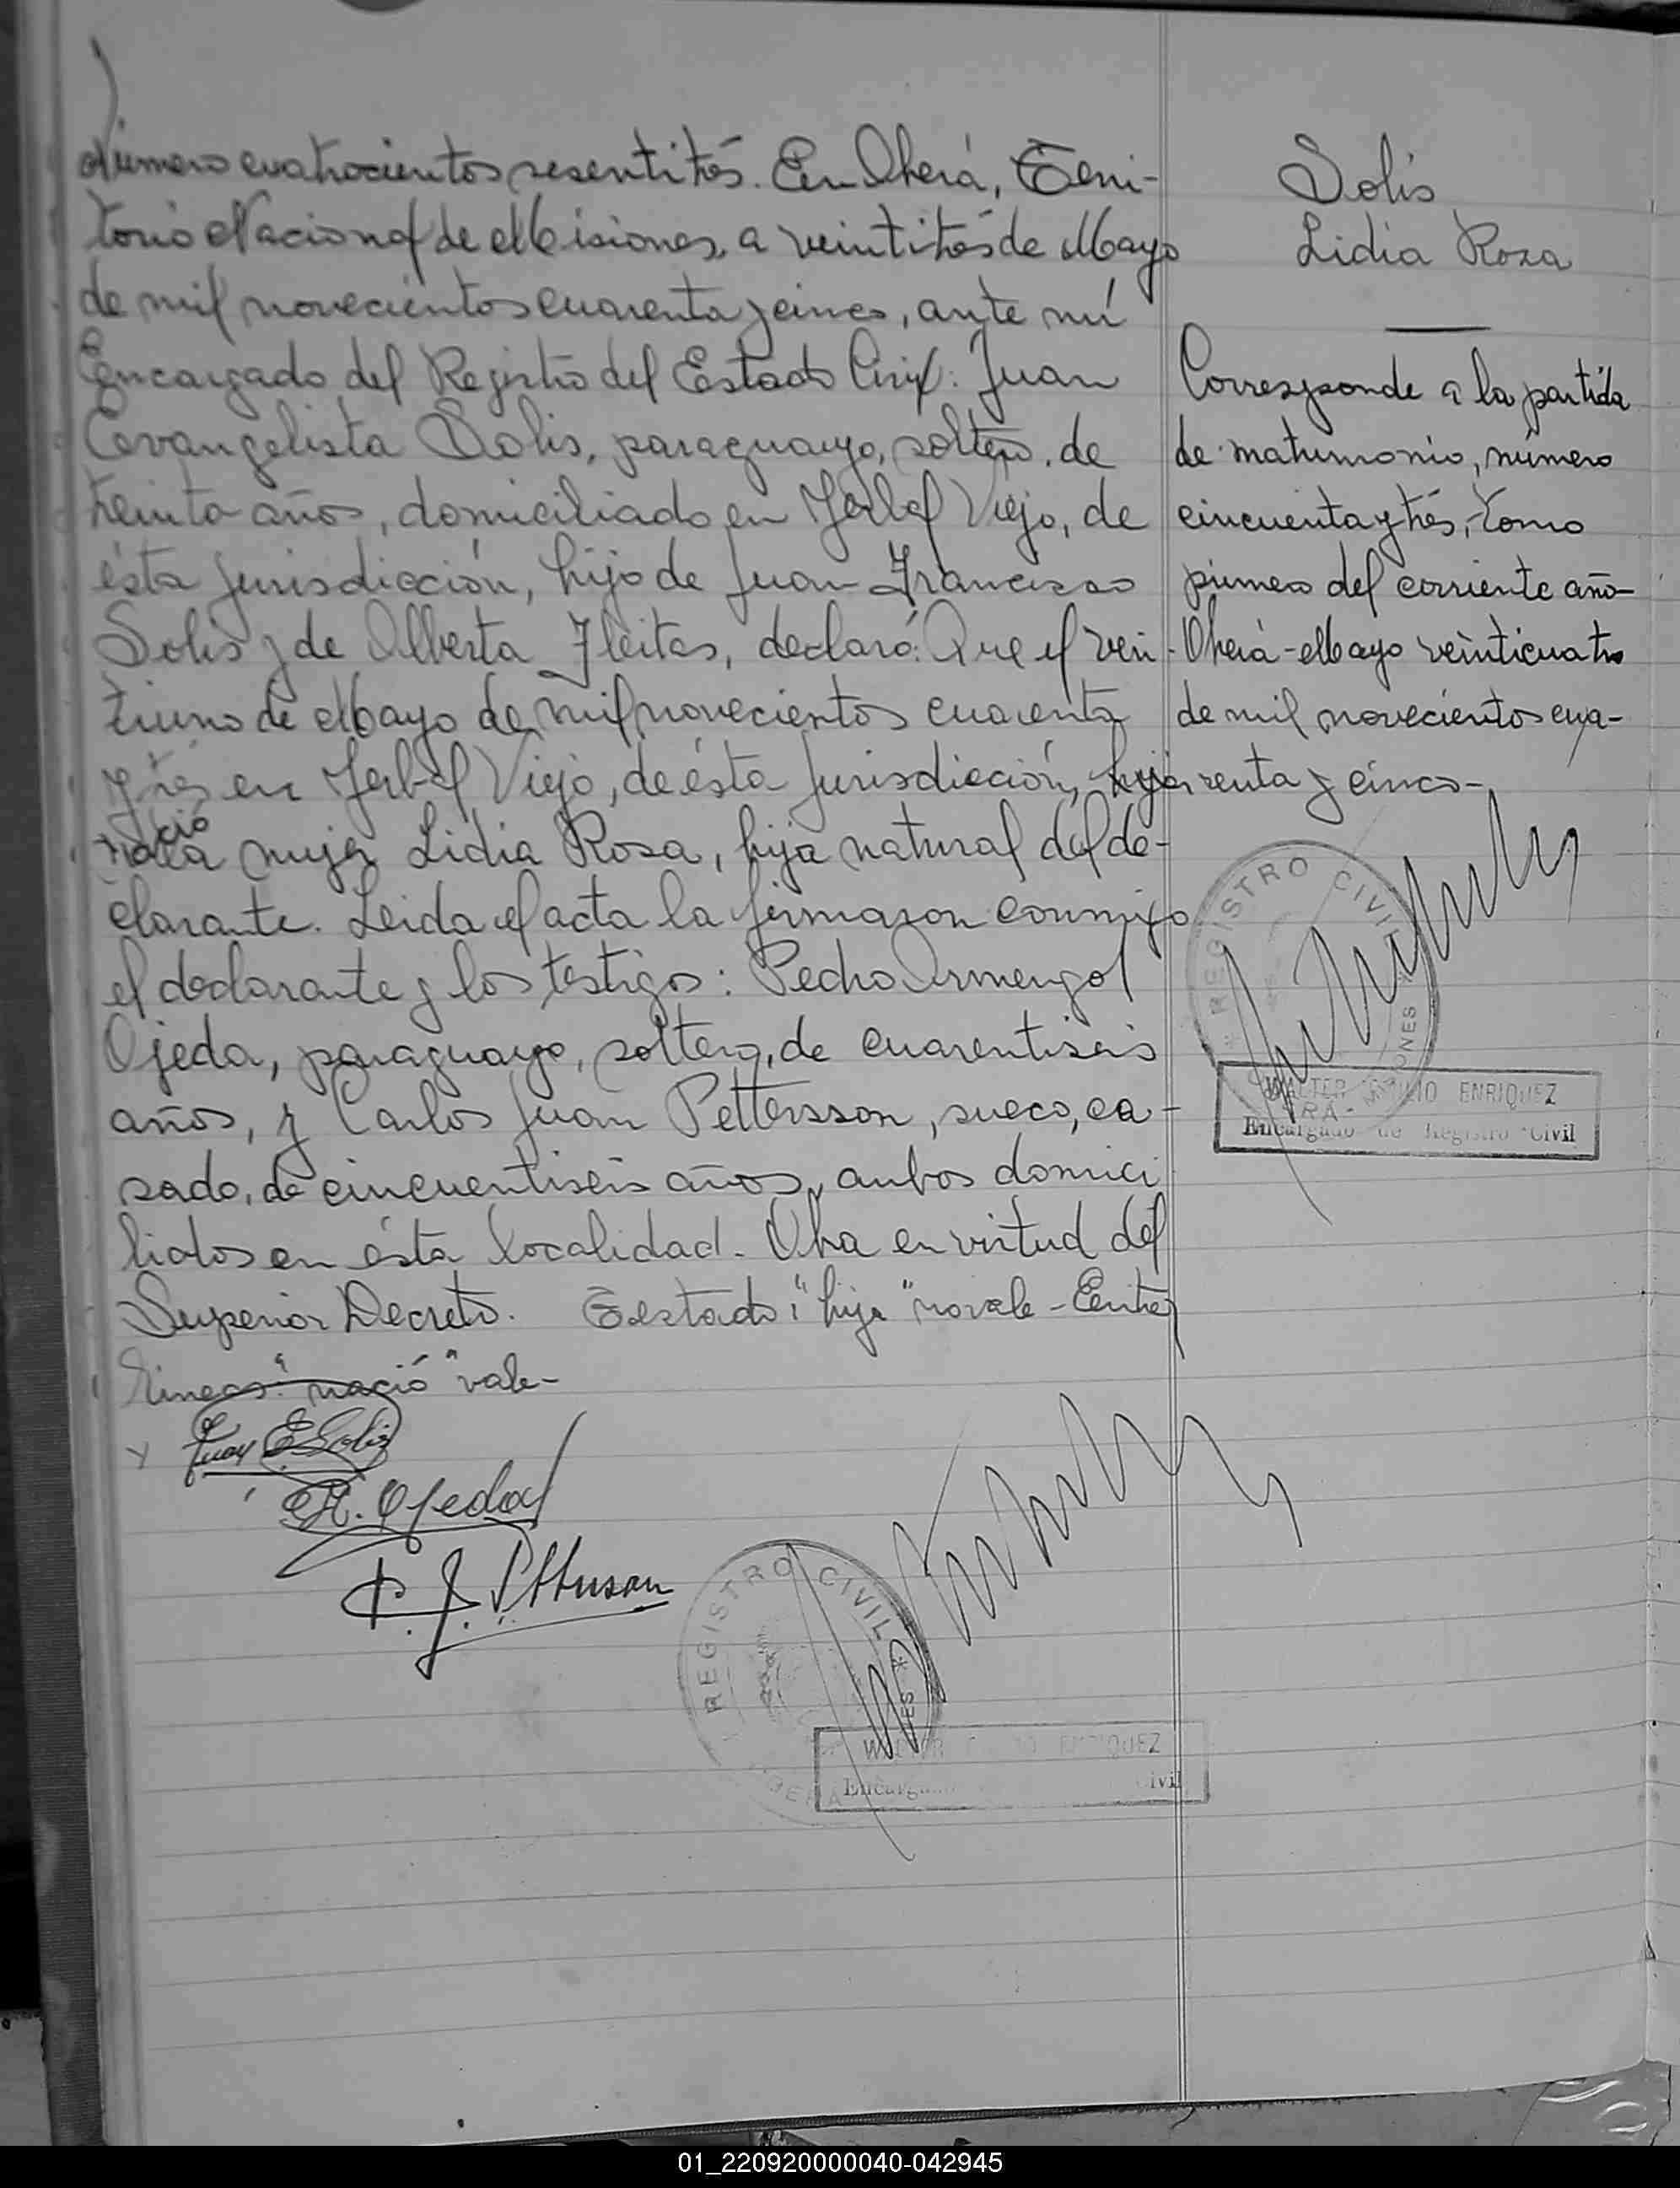 Número cuatrocientos sesentitrés. En Oberá, Terri-
torio Nacional de Misiones, a veintitrés de Mayo
de mil novecientos cuarenta y cinco, ante mí
Encargado del Registro del Estado Civil: Juan
Evangelista Solis, paraguayo, soltero, de
treinta años, domiciliado en Yerbal Viejo, de
ésta jurisdicción, hijo de Juan Francisco
Solis y de Alberta Fleitas, declaró: Que el vein-
tiuno de Mayo de mil novecientos cuarenta
y tres en Yerbal Viejo, de ésta jurisdicción, hija
nació
la mujer Lidia Rosa, hija natural del de-
clarante. Leida el acta la firmaron conmigo
el declarante y los testigos: Pedro Armengol
Ojeda, paraguayo, soltero, de cuarentiseis
años, y Carlos Juan Pettersson, sueco, ca-
sado, de cincuentiseis años, ambos domici
liados en ésta localidad. Obra en virtud del
Superior Decreto. Testado: "hija" no vale - Entre
lineas: "nació" vale -
Juan E. Solis
Ojeda
C. J. Pettersson
REGISTRO CIVIL
OBERÁ
WALTER EMILIO ENRIQUEZ
Encargado de Registro Civil
Solis
Lidia Rosa
Corresponde a la partida
de matrimonio, número
cincuenta y trés, tomo
primero del corriente año-
Oberá - Mayo veinticuatro
de mil novecientos cua-
renta y cinco -
REGISTRO CIVIL
MISIONES
WALTER EMILIO ENRIQUEZ
Encargado de Registro Civil
01_220920000040-042945